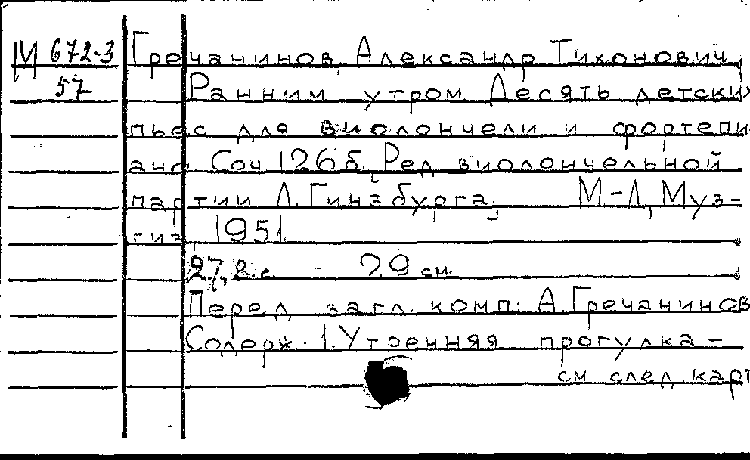 М 672-3 Гречанинов, Александр Тихонович
57 Ранним утром. Десять детски
пьес для виолончели и фортепи
ано Соч 126б. Ред виолончельной
партии Л. Гинзбурга. М-Л, Муз-
гиз 1951
27, 8 с 29 см
Перед загл. комп: А. Гречанинов
Содерж. 1. Утренняя прогулка -
см след карт